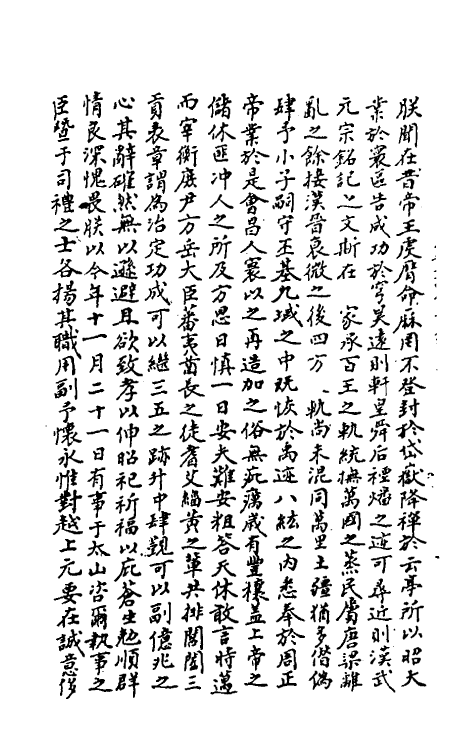 朕聞在昔帝王虔膺命厤罔不登封於岱嶽降禪於云亭所以昭大
業於寰區告成功於穹昊遠則軒皇舜后禮燔之迹可尋近則漢武
元宗銘記之文斯在 家承百王之軌統撫萬國之蒸民屬唐梁離
亂之餘接漢晉衰微之後四方 軌尚未混同萬里土疆猶多僭偽
肆予小子嗣守丕基九域之中既恢於禹迹八紘之內悉奉於周正
帝業於是會昌人寰以之再造加之俗無疵癘歲有豐穰蓋上帝之
儲休匪沖人之所及方思日慎一日安夫難安粗答天休敢言時邁
而宰衡庶尹方岳大臣蕃夷酋長之徒耆艾緇黃之輩共排閶闔三
貢表章謂為治定功成可以繼三五之跡升中肆覲可以副億兆之
心其辭確然無以遜避且欲致孝以伸昭祀祈福以庇蒼生勉順群
情良深愧畏朕以今年十一月二十一日有事于太山咨爾執事之
臣暨于司禮之士各揚其職用副予懷永惟對越上元要在誠意後